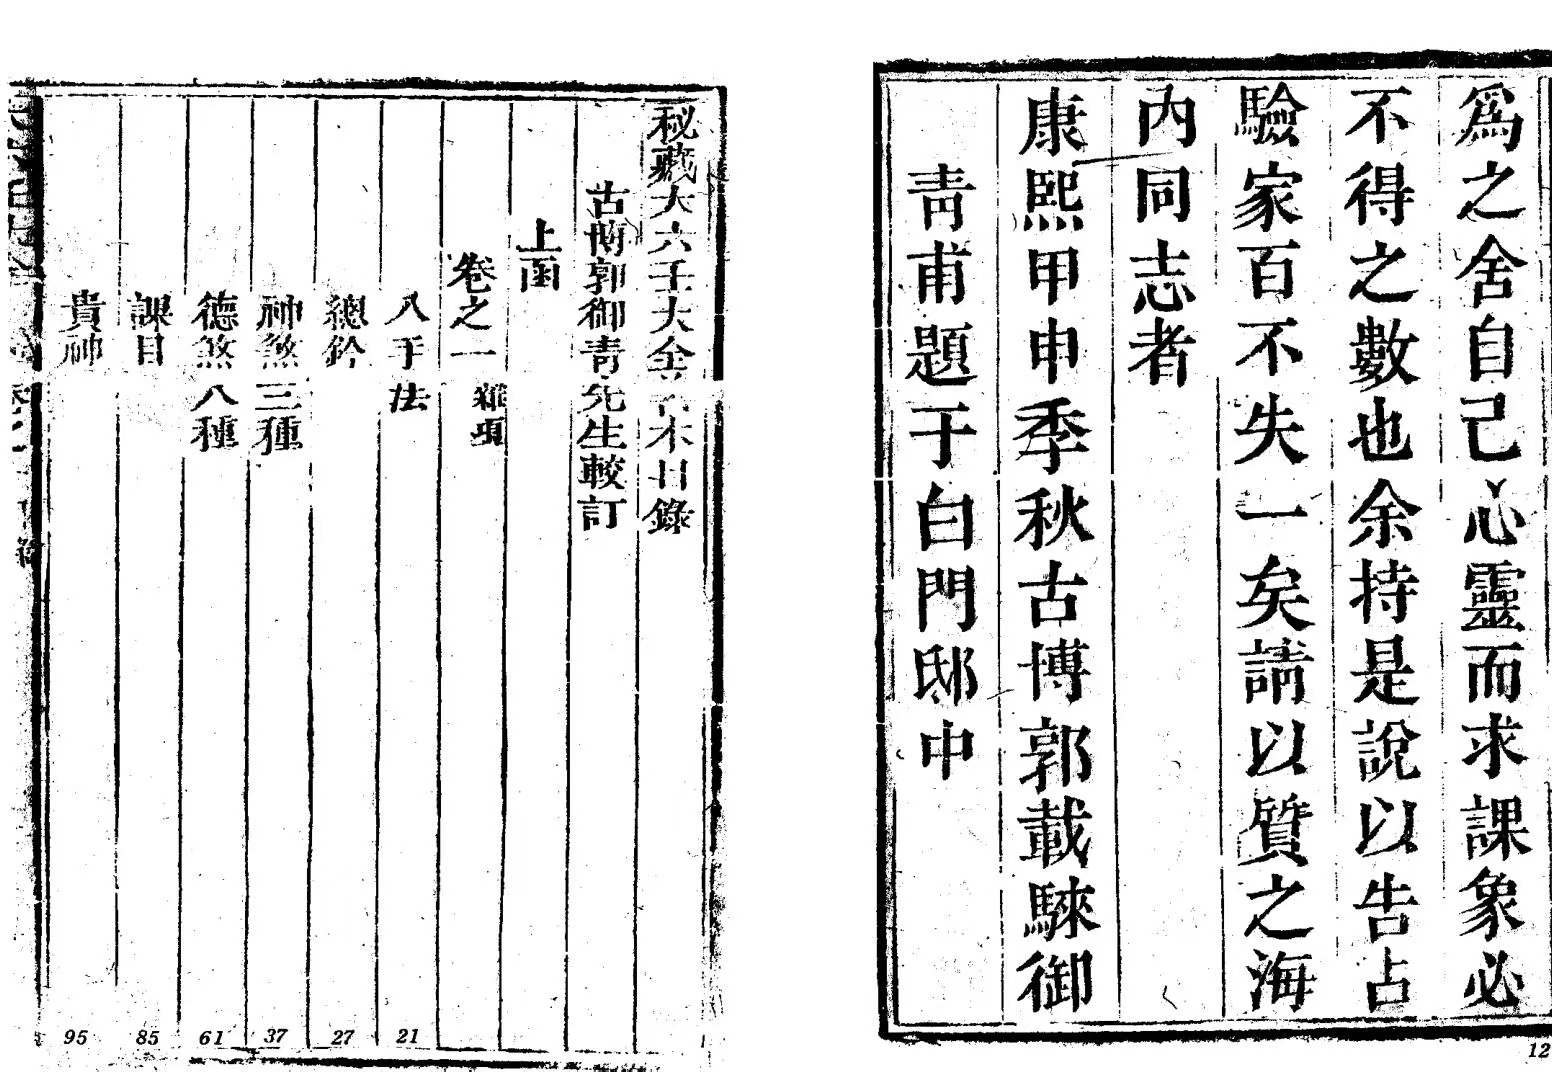 爲之舍自己心靈而求課象必
不得之數也余持是說以告占
驗家百不失一矣請以質之海
內同志者
康熙甲申季秋古博郭載騋御
青甫題于白門邸中
12
秘藏大六壬大全善本目錄
古博郭御青先生較訂
上函
卷之一 雜項
八千法
21
總鈐
27
神煞三種
37
德煞八種
61
課目
85
貴神
95